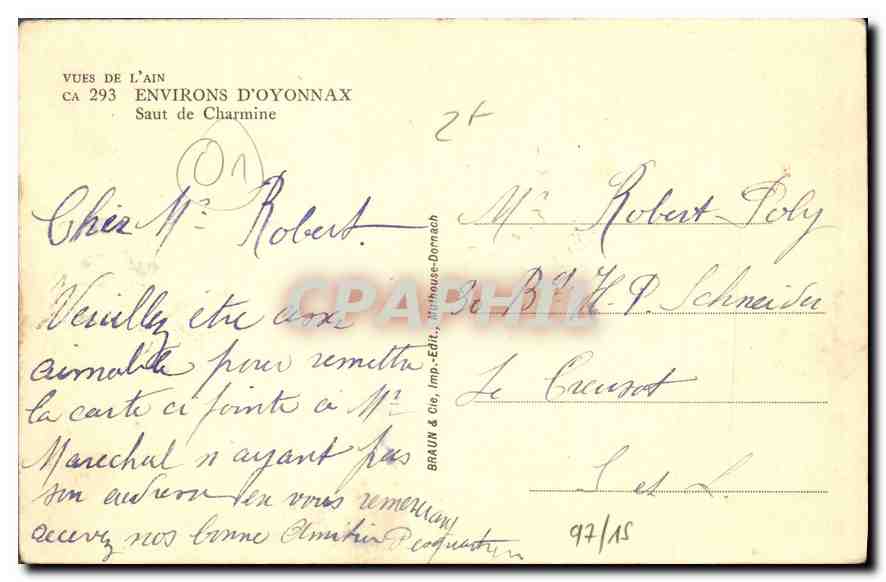 VUES DE L'AIN
CA 293 ENVIRONS D'OYONNAX
Saut de Charmine
2f
01
Cher Mr Robert.
Veuillez être assez
aimable pour remettre
la carte ci jointe à Mr
Marechal n'ayant pas
son adresse en vous remerciant
recevez nos bonne Amitier
BRAUN & Cie, Imp.-Edit., Mulhouse-Dornach
Mr Robert Poly
30 Bd H. P. Schneider
Le Creusot
S et L.
97/15
CPAPHIL